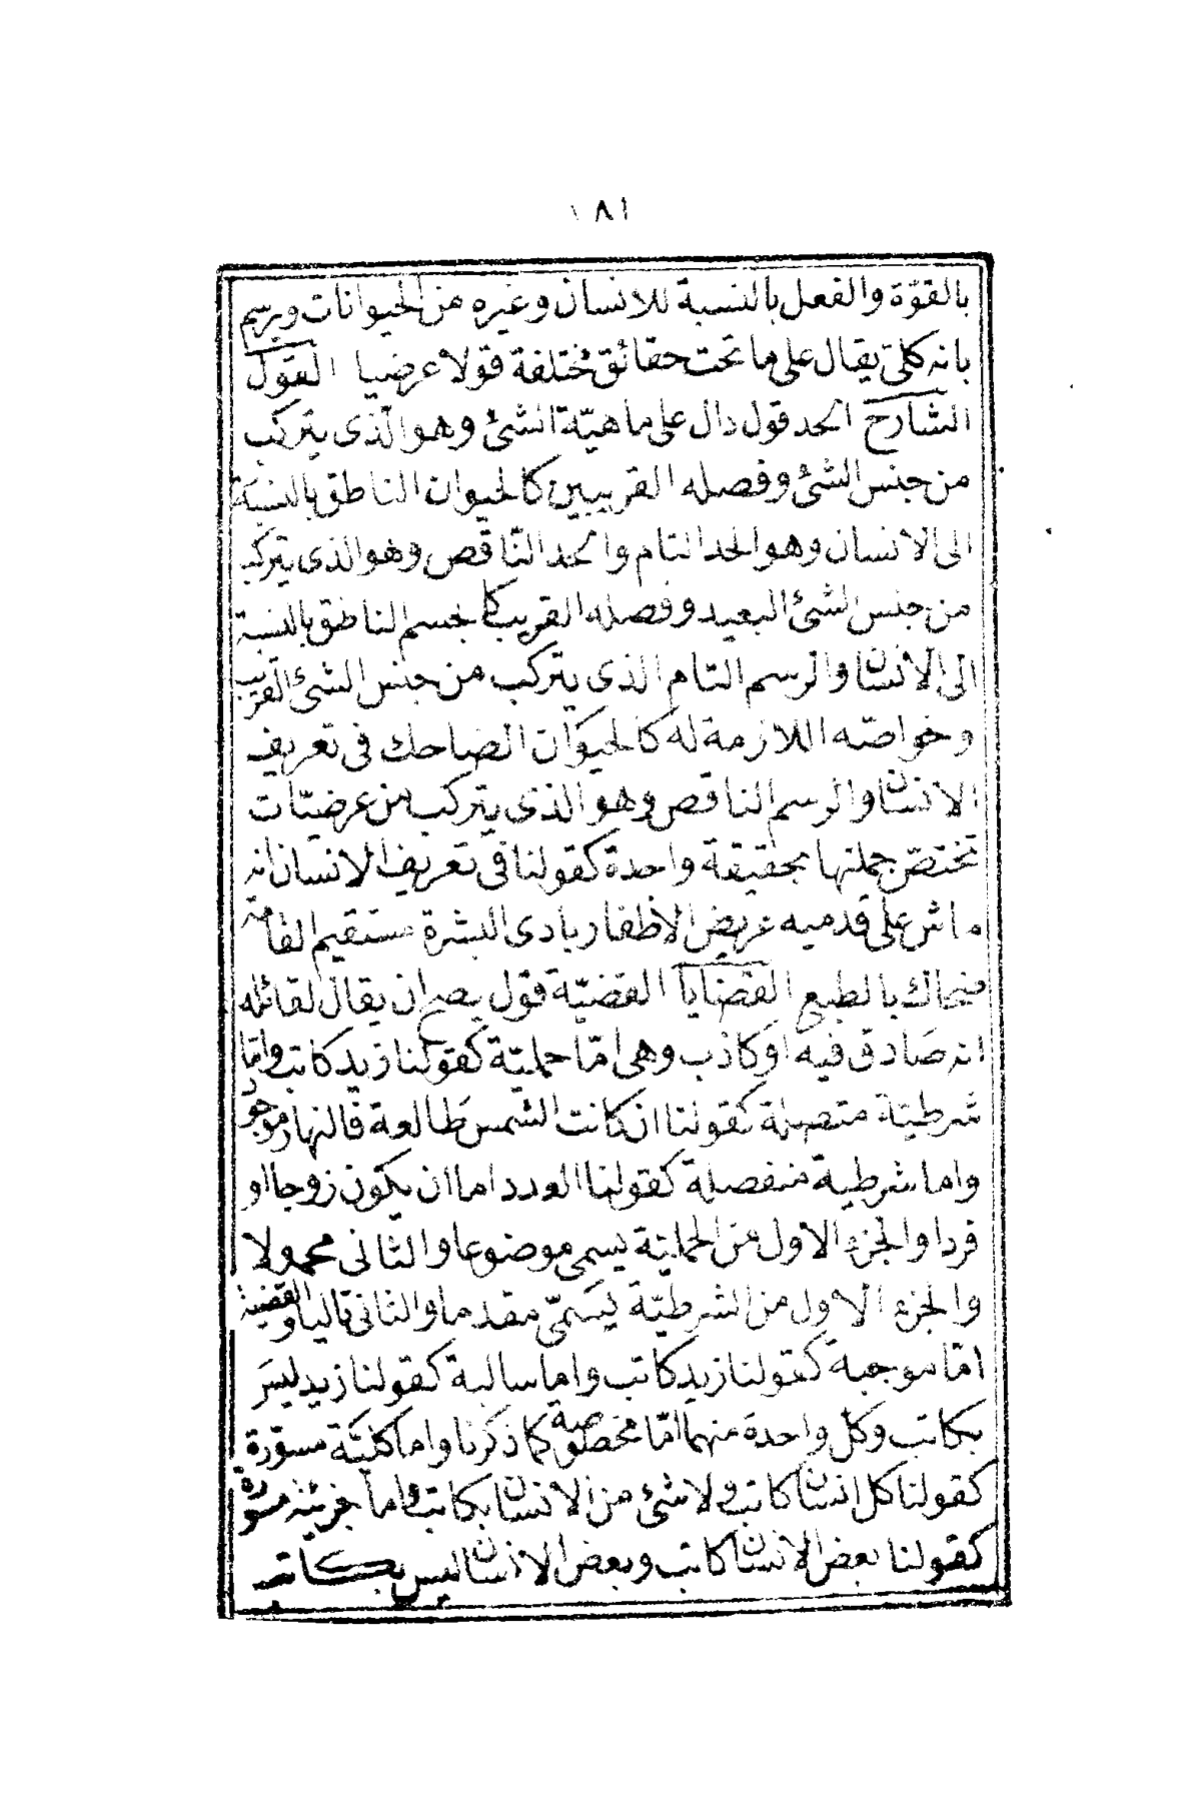 ١٨١
بالقوّة والفعل بالنسبة للانسان وغيره من الحيوانات ويرسم
بانه كلى يقال على ما تحت حقائق مختلفة قولا عرضيا القول
الشارح الحد قول دال على ماهيّة الشئ وهو الّذى يتركب
من جنس الشئ وفصله القريبين كالحيوان الناطق بالنسبة
الى الانسان وهو الحد التام والحد النّاقص وهو الذى يتركب
من جنس الشئ البعيد وفصله القريب كالجسم الناطق بالنسبة
الى الانسان والرسم التام الذى يتركب من جنس الشئ القريب
وخواصّه اللازمة له كالحيوان الضاحك فى تعريف
الانسان والرسم الناقص وهو الذى يتركب من عرضيّات
تختصّ جملتها بحقيقة واحدة كقولنا فى تعريف الانسان انه
ماش على قدميه عريض الاظفار بادى البشرة مستقيم القامة
ضحاك بالطبع القضايا القضيّة قول يصح ان يقال لقائله
انه صادق فيه او كاذب وهى امّا حمليّة كقولنا زيد كاتب وامّا
شرطيّة متصلة كقولنا ان كانت الشمس طالعة فالنهار موجود
واما شرطية منفصلة كقولنا العدد اما ان يكون زوجا او
فردا والجزء الاول من الحمليّة يسمى موضوعا والثانى محمولا
والجزء الاول من الشرطيّة يسمّى مقدما والثانى تاليا والقضية
امّا موجبة كقولنا زيد كاتب واما سالبة كقولنا زيد ليس
بكاتب وكل واحدة منهما امّا مخصوصة كما ذكرنا واما كليّة مسوّرة
كقولنا كل انسان كاتب ولا شئ من الانسان بكاتب واما جزئية مسورة
كقولنا بعض الانسان كاتب وبعض الانسان ليس بكاتب